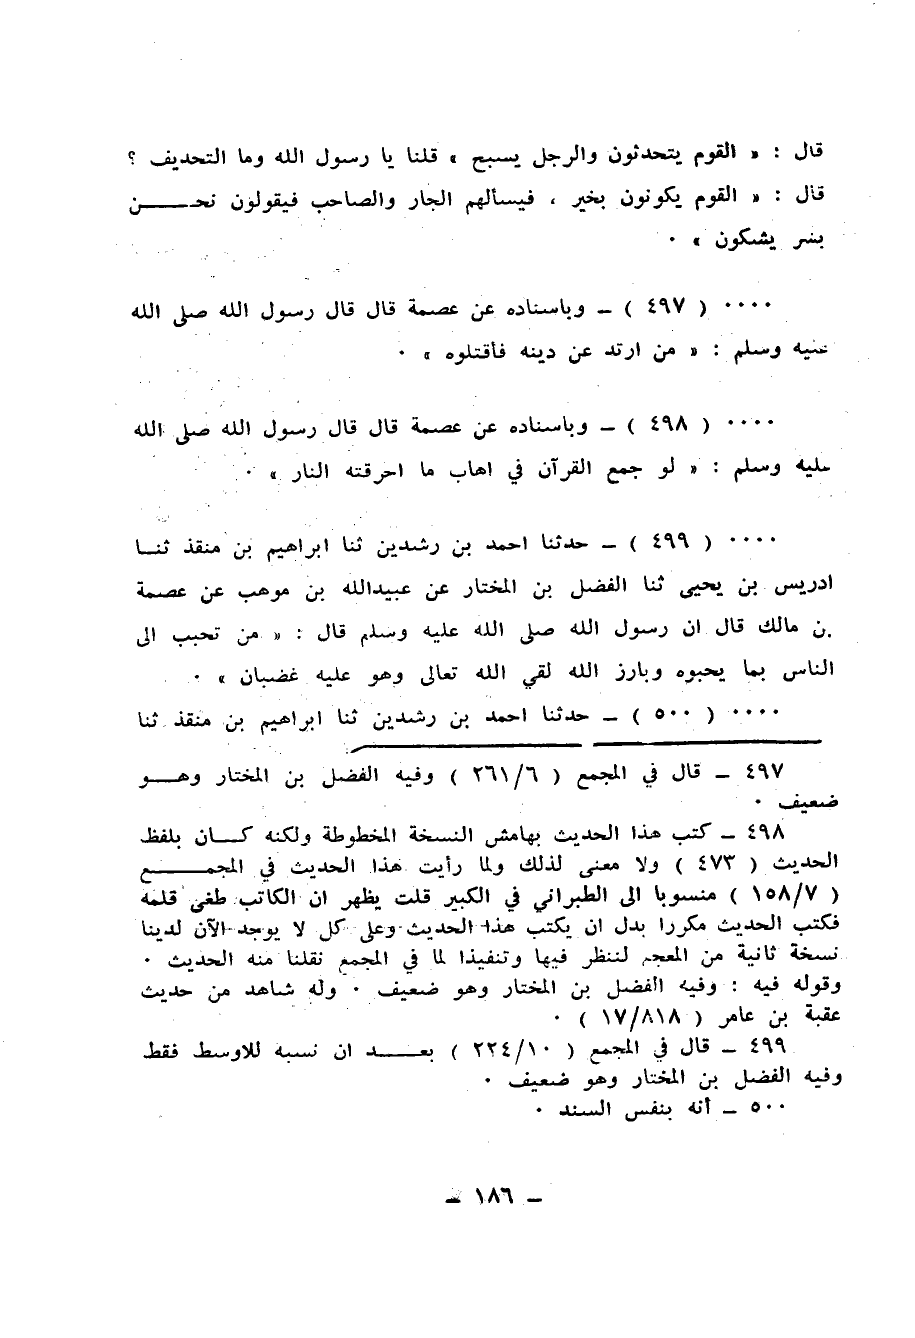 قال : « القوم يتحدثون والرجل يسبح » قلنا يا رسول الله وما التحديف ؟
قال : « القوم يكونون بخير ، فيسألهم الجار والصاحب فيقولون نحـــــن
بشر يشكون » ٠
٠٠٠٠ ( ٤٩٧ ) ـ وباسناده عن عصمة قال قال رسول الله صلى الله
عليه وسلم : « من ارتد عن دينه فأقتلوه » ٠
٠٠٠٠ ( ٤٩٨ ) ـ وباسناده عن عصمة قال قال رسول الله صلى الله
عليه وسلم : « لو جمع القرآن في اهاب ما احرقته النار » ٠
٠٠٠٠ ( ٤٩٩ ) ـ حدثنا احمد بن رشدين ثنا ابراهيم بن منقذ ثنــا
ادريس بن يحيى ثنا الفضل بن المختار عن عبيدالله بن موهب عن عصمة
بن مالك قال ان رسول الله صلى الله عليه وسلم قال : « من تحبب الى
الناس بما يحبوه وبارز الله لقي الله تعالى وهو عليه غضبان » ٠
٠٠٠٠ ( ٥٠٠ ) ـ حدثنا احمد بن رشدين ثنا ابراهيم بن منقذ ثنا
٤٩٧ ـ قال في المجمع ( ٢٦١/٦ ) وفيه الفضل بن المختار وهـــو
ضعيف ٠
٤٩٨ ـ كتب هذا الحديث بهامش النسخة المخطوطة ولكنه كـــان بلفظ
الحديث ( ٤٧٣ ) ولا معنى لذلك ولما رأيت هذا الحديث في المجمـــــع
( ١٥٨/٧ ) منسوبا الى الطبراني في الكبير قلت يظهر ان الكاتب طغى قلمه
فكتب الحديث مكررا بدل ان يكتب هذا الحديث وعلى كل لا يوجد الآن لدينا
نسخة ثانية من المعجم لننظر فيها وتنفيذا لما في المجمع نقلنا منه الحديث ٠
وقوله فيه : وفيه الفضل بن المختار وهو ضعيف ٠ وله شاهد من حديث
عقبة بن عامر ( ١٧/٨١٨ ) ٠
٤٩٩ ـ قال في المجمع ( ٢٢٤/١٠ ) بعـــــد ان نسبه للاوسط فقط
وفيه الفضل بن المختار وهو ضعيف ٠
٥٠٠ ـ أنه بنفس السند ٠
ـ ١٨٦ ـ